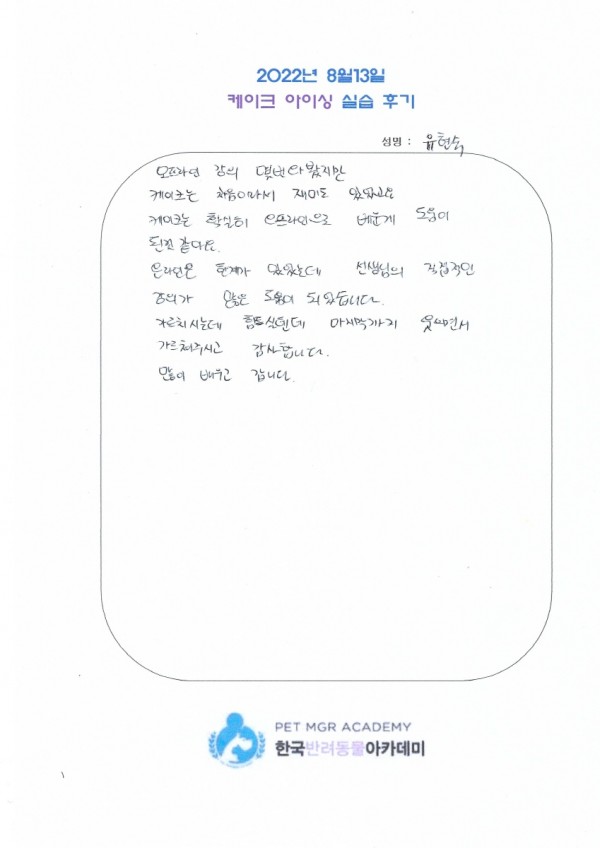 2022년 8월13일
케이크 아이싱 실습 후기
성명 : 유현숙
오프라인 강의 몇번 와봤지만
케이크는 처음이라서 재미도 있었고요
케이크는 확실히 오프라인으로 배운게 도움이
된것 같아요.
온라인은 한계가 있었는데 선생님의 직접적인
강의가 많은 도움이 되었습니다.
가르치시는데 힘드실텐데 마지막까지 웃으면서
가르쳐주시고 감사합니다.
많이 배우고 갑니다.
PET MGR ACADEMY
한국반려동물아카데미